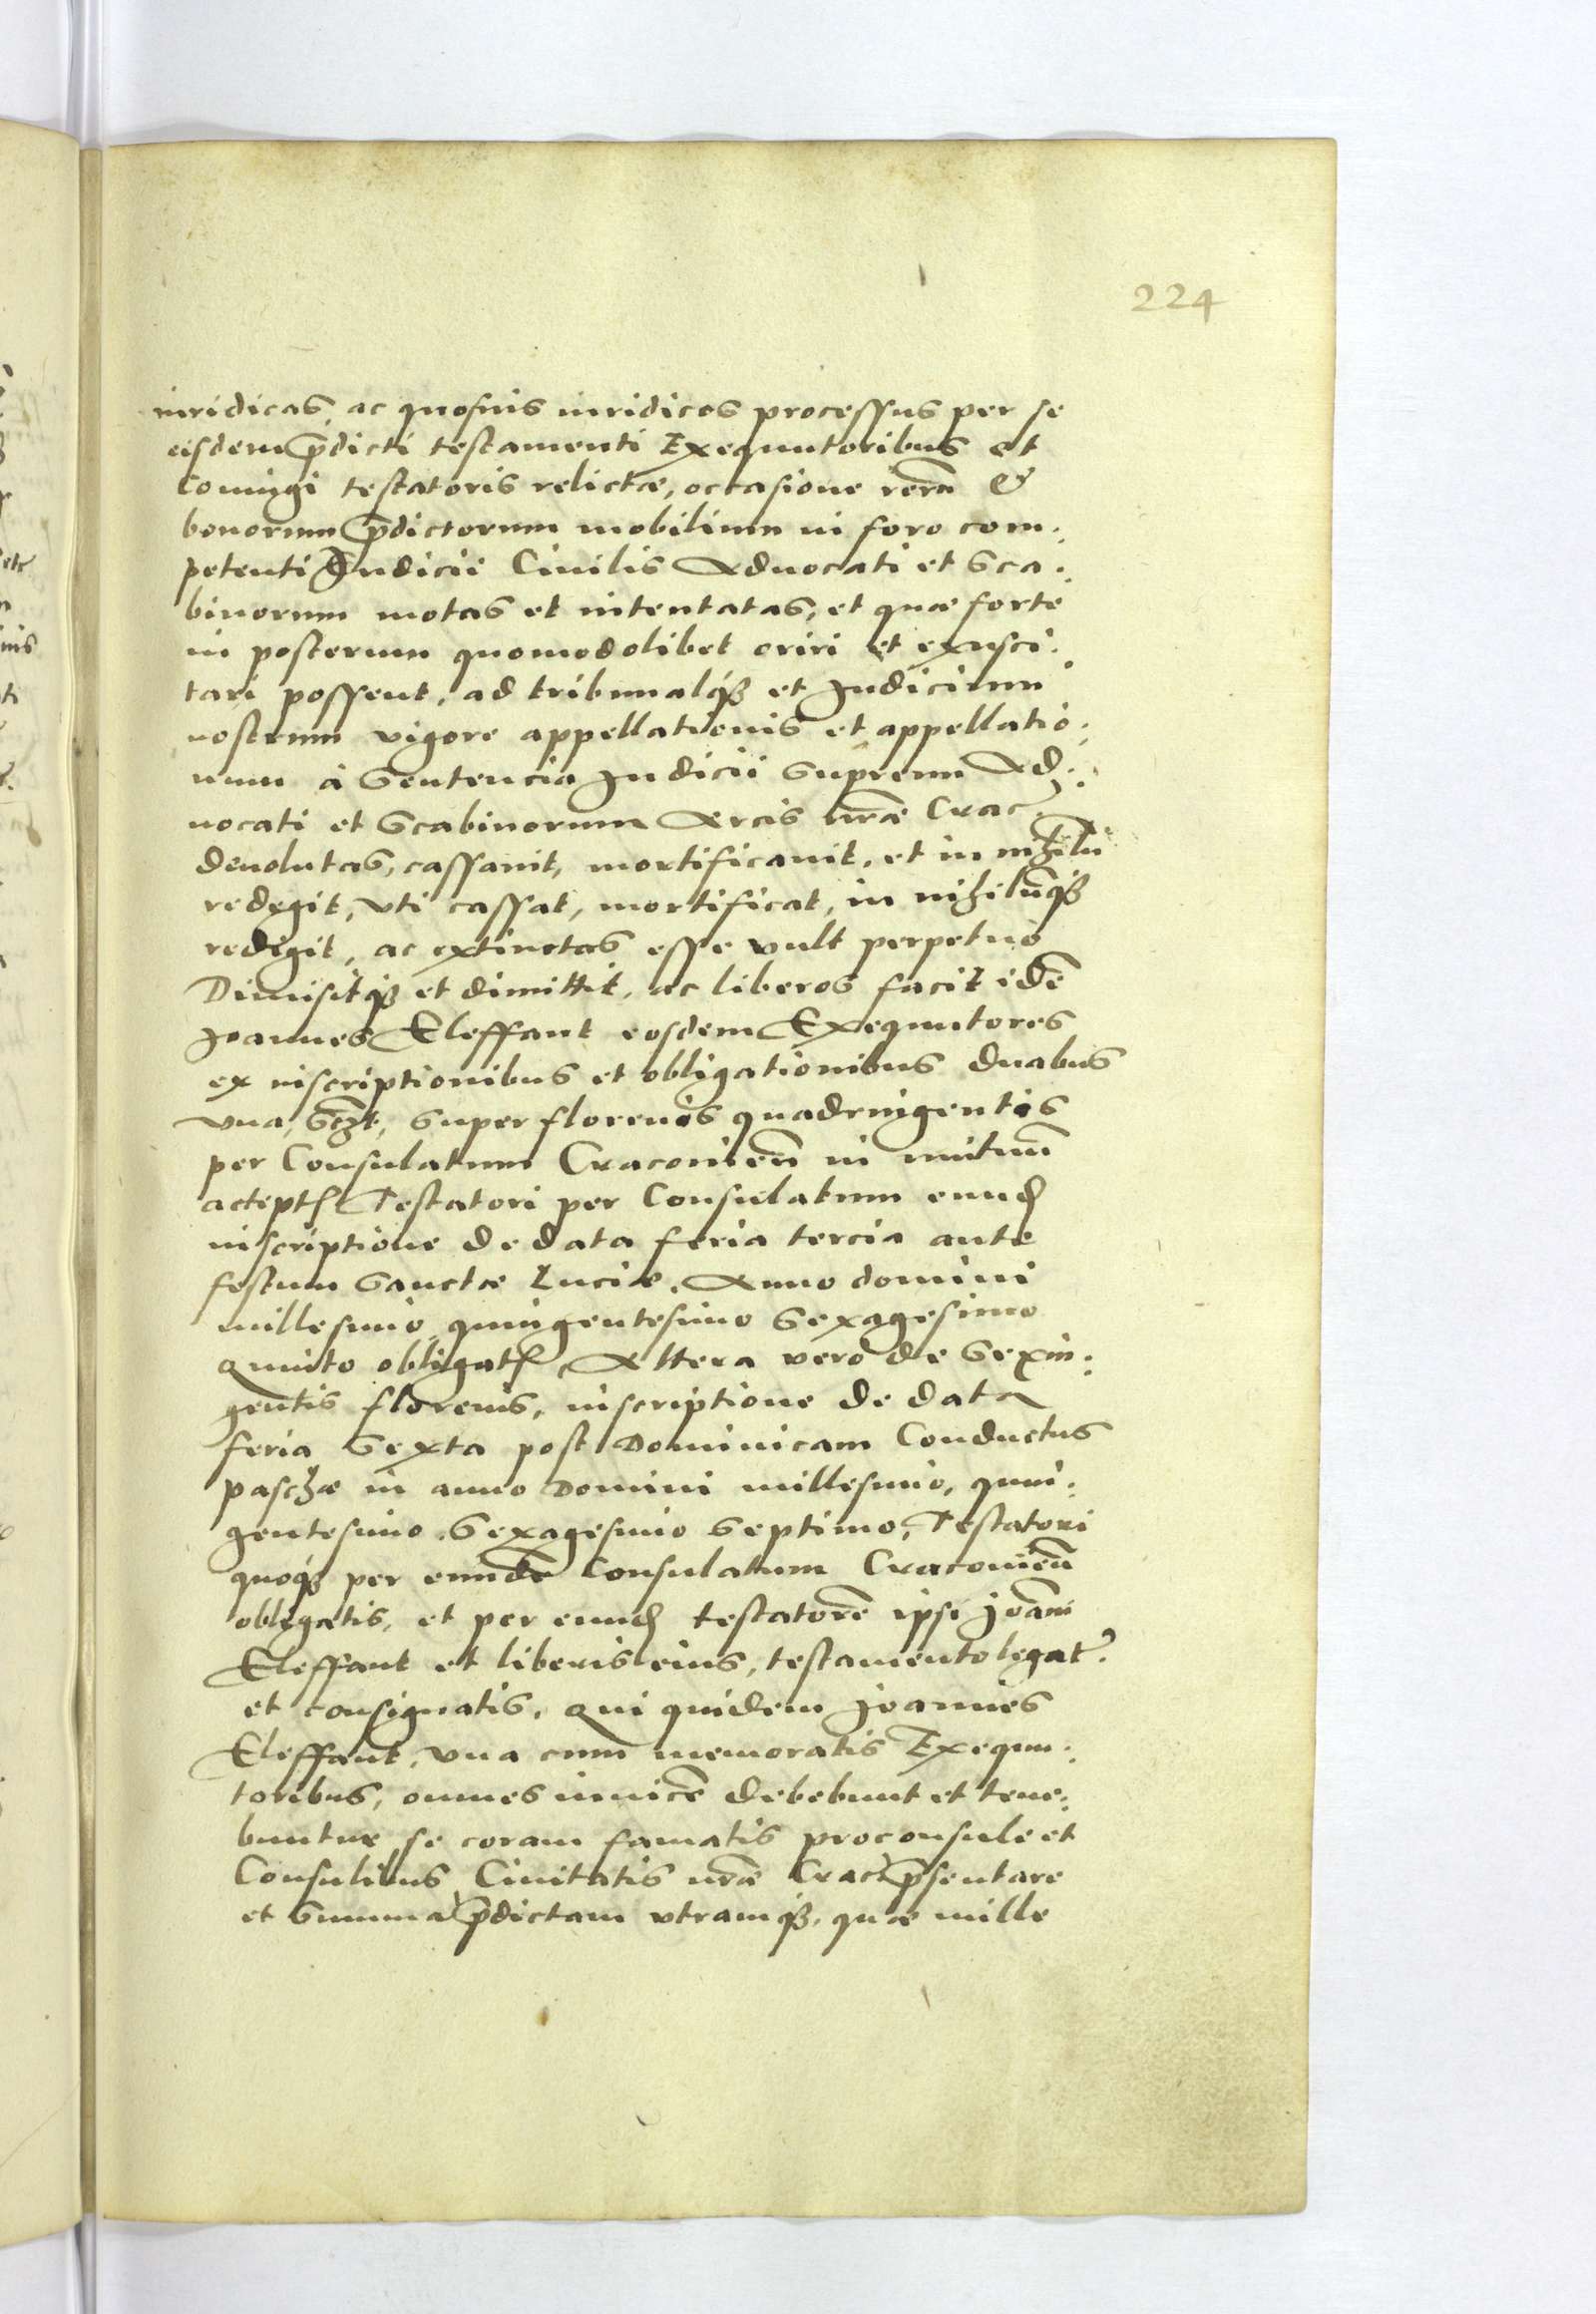 224
iuridicas, ac quosuis iuridicos processus per se
eisdem p̄dicti testamenti Exequutoribus et
Coniugi testatoris relictæ, occasione rerū &
bonorum p̄dictorum mobilium in foro com:
petenti Iudicii Ciuilis Aduocati et Sca:
binorum motas et intentatas, et quæ forte
in posterum quomodolibet oriri et exusci:
tari possent, ad tribunalq3 et Iudicium
nostrum vigore appellationis et appellatio:
num à Sentencia Iudicii Supremi Ad:
uocati et Scabinorum Arcis nr̄æ Crac
deuolutas, cassauit, mortificauit, et in nihilū
redegit, vti cassat, mortificat, in nihilūq3
redigit, ac extinctas esse vult perpetuò
Dimisitq3 et dimittit, ac liberos facit idē
Joannes Eleffant eosdem Exequutores
ex inscriptionibus et obligationibus duabus
vna, , super florenis quadringentis
per Consulatum Cracouien̄ in mutuū
accept Testatori per Consulatum eund
inscriptione de data feria tercia ante
festum Sanctæ Luciæ, Anno domini
millesimo quingentesimo Sexagesimo
Quinto obligat, Altera vero de Sexin:
gentis florenis, inscriptione de data
feria Sexta post Dominicam Conductus
paschæ in anno Domini millesimo, quin:
gentesimo Sexagesimo Septimo, Testatori
quoq3 per eundē Consulatum Cracouien̄
obligatis, et per eund testatorē ipsi Joāni
Eleffant et liberis eius, testamento legat.
et consignatis, Qui quidem Joannes
Eleffant, vna cum memoratis Exequu:
toribus, omnes inuicē debebunt et tene:
buntur, se coram famatis proconsule et
Consulibus Ciuitatis nr̄æ Crac p̄sentare
et Summa p̄dictam vtramq3, quæ mille